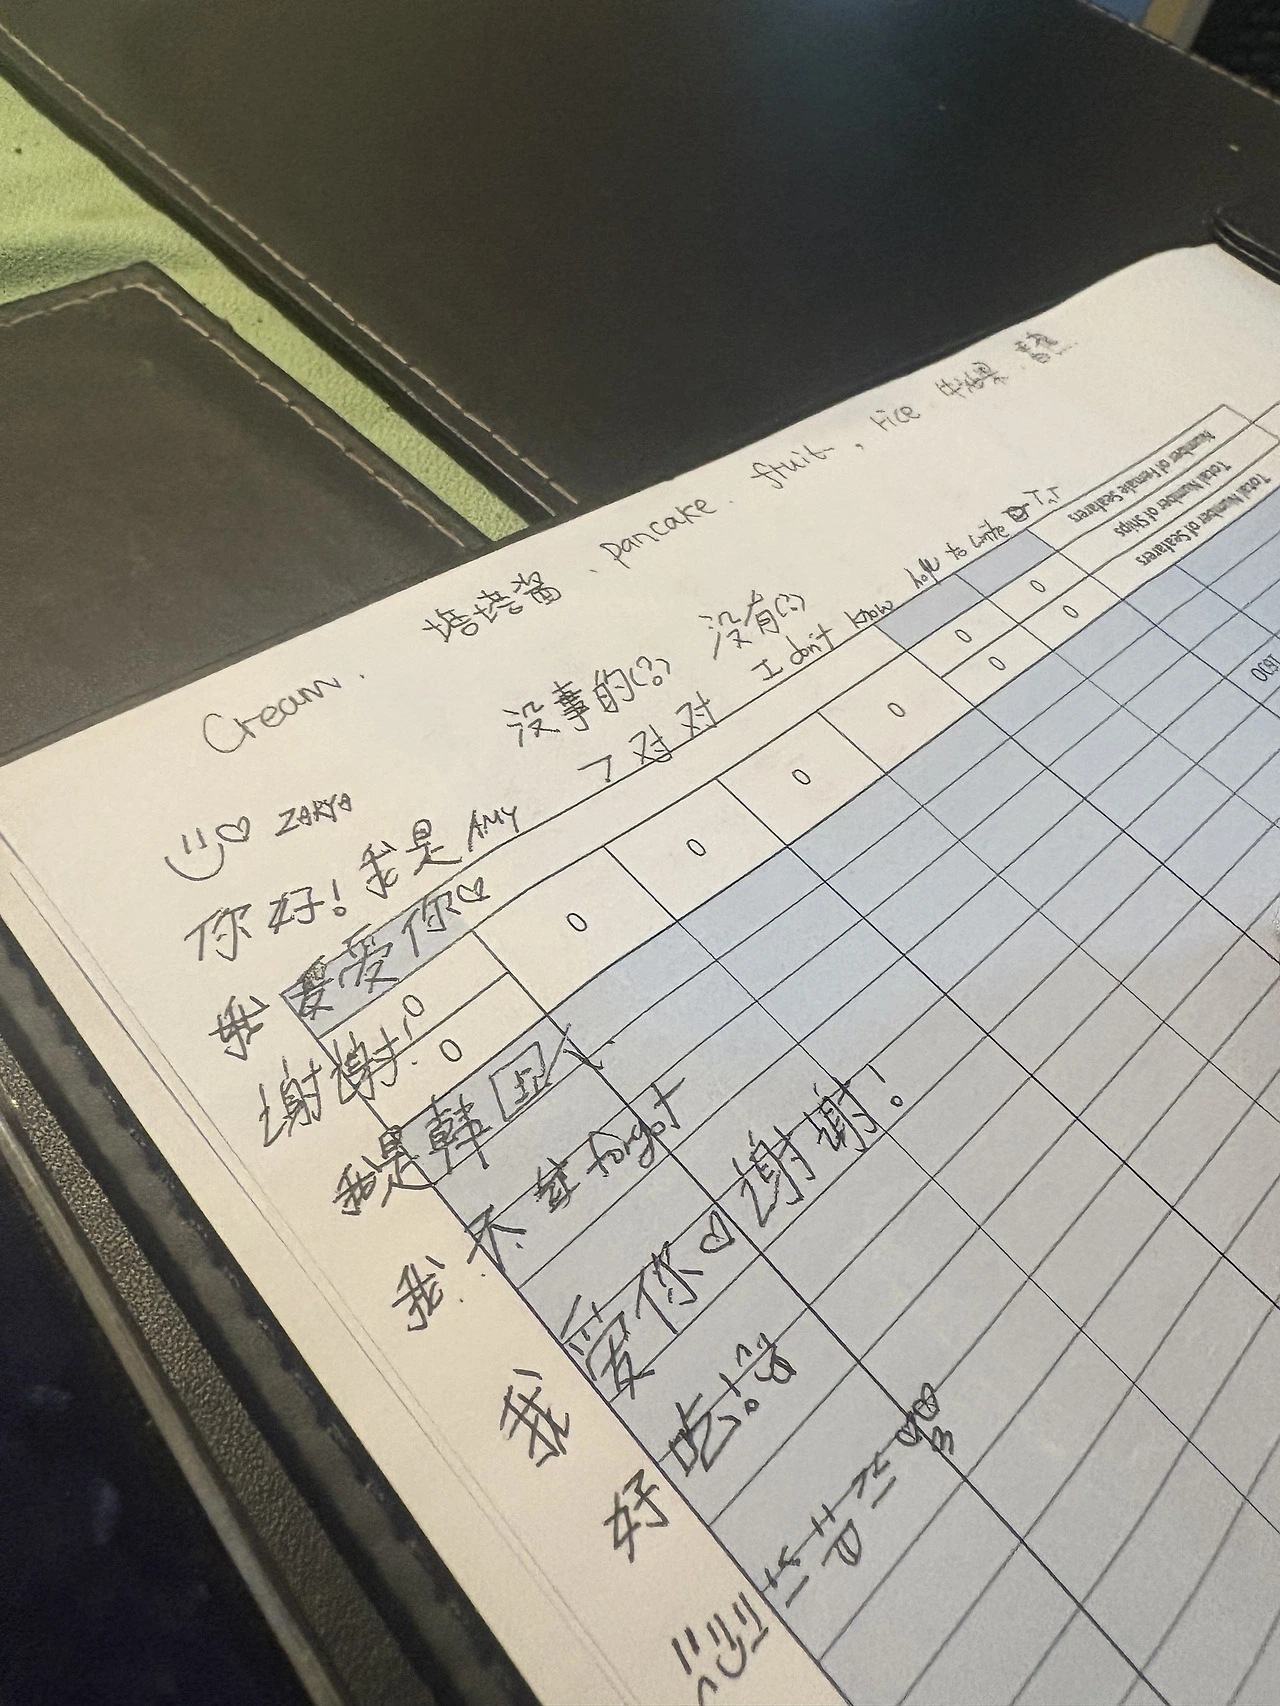 Cream. 塔塔酱、pancake. fruit, rice 牛油果.
没事的(?) 没有(?)
对对 I don't know how to write TT
ZARYA
你好!我是 AMY
我爱你♡
谢谢!
我是韩国
我不 forgot
我爱你♡谢谢!
好吃!
Number of Female Seafarers
Total Number of Ships
Total Number of Seafarers
0
0
0
0
0
0
0
0
0
0
1600